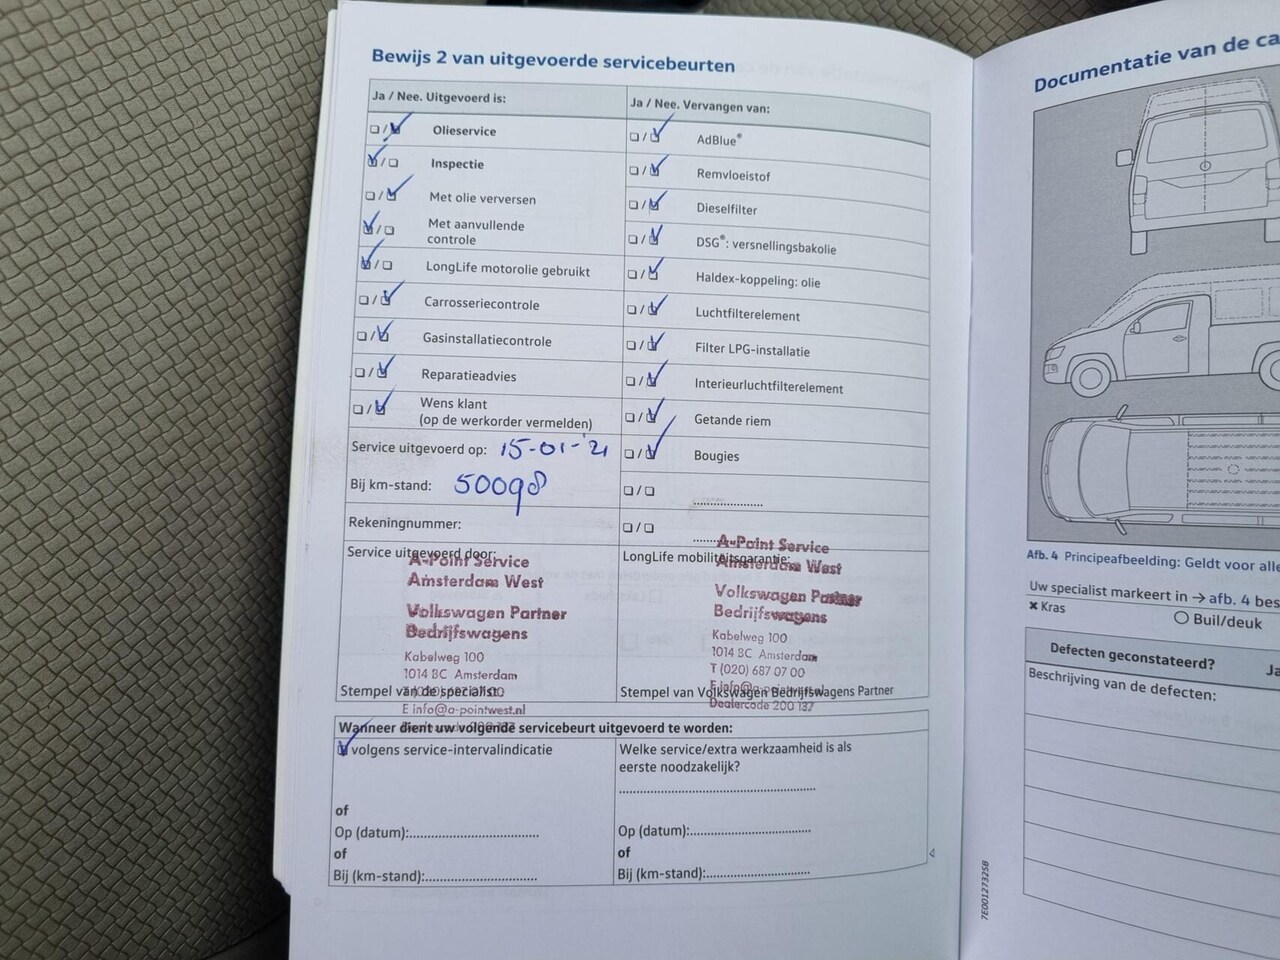 Bewijs 2 van uitgevoerde servicebeurten
Ja / Nee. Uitgevoerd is:
Olieservice
Inspectie
Met olie verversen
Met aanvullende
controle
LongLife motorolie gebruikt
Carrosseriecontrole
Gasinstallatiecontrole
Reparatieadvies
Wens klant
(op de werkorder vermelden)
Service uitgevoerd op: 15-01-'21
Bij km-stand: 50098
Rekeningnummer:
Service uitgevoerd door:
A-Point Service
Amsterdam West
Volkswagen Partner
Bedrijfswagens
Kabelweg 100
1014 BC Amsterdam
Stempel van de specialist:
E info@a-pointwest.nl
Ja / Nee. Vervangen van:
AdBlue®
Remvloeistof
Dieselfilter
DSG®: versnellingsbakolie
Haldex-koppeling: olie
Luchtfilterelement
Filter LPG-installatie
Interieurluchtfilterelement
Getande riem
Bougies
LongLife mobiliteitsgarantie:
A-Point Service
Amsterdam West
Volkswagen Partner
Bedrijfswagens
Kabelweg 100
1014 BC Amsterdam
T (020) 687 07 00
Stempel van Volkswagen Bedrijfswagens Partner
Dealercode 200 137
Wanneer dient uw volgende servicebeurt uitgevoerd te worden:
volgens service-intervalindicatie
of
Op (datum):
of
Bij (km-stand):
Welke service/extra werkzaamheid is als
eerste noodzakelijk?
Op (datum):
of
Bij (km-stand):
7E0012732SB
Documentatie van de ca
Afb. 4 Principeafbeelding: Geldt voor alle
Uw specialist markeert in → afb. 4 bes
× Kras
○ Buil/deuk
Defecten geconstateerd? Ja
Beschrijving van de defecten: